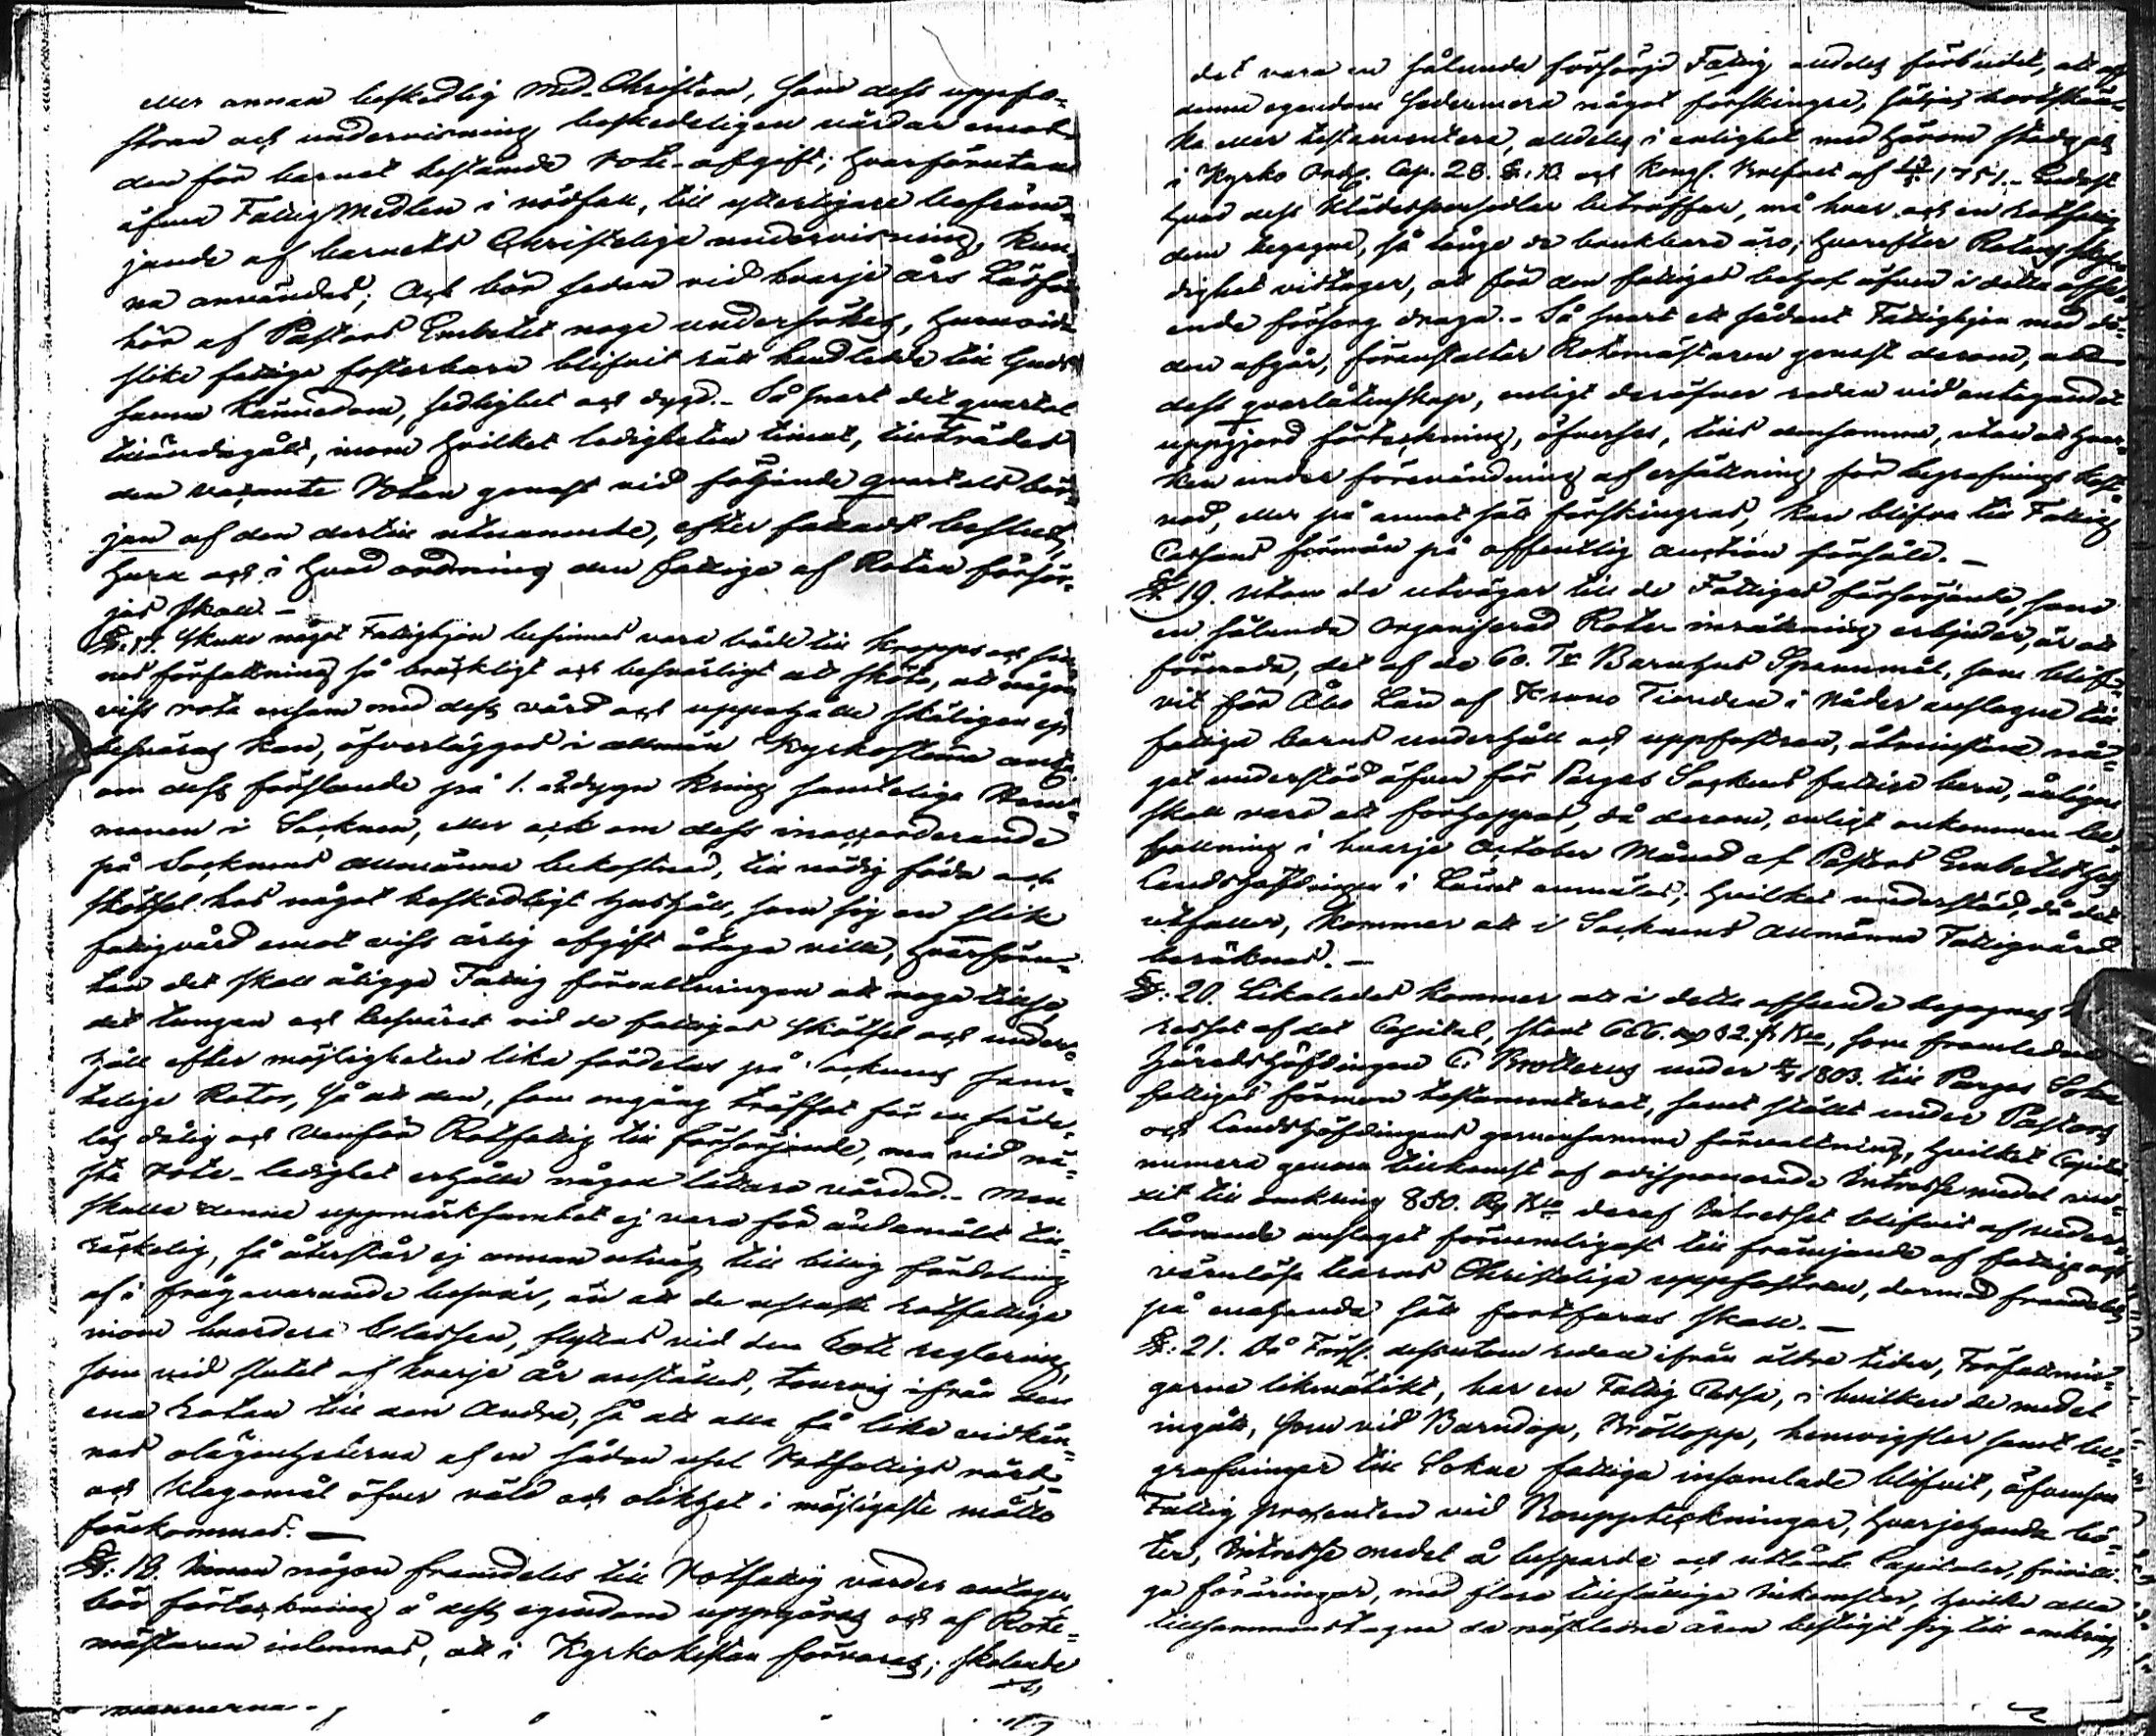 eller annan beskedlig Med-Christen, som dess uppfo-
stran och undervisning beskedeligen vårdar emot
den för barnet bestämde Rote-afgift; hvarförutan
äfven Fattig Medlen i nödfall, till ytterligare befräm-
jande af barnets Christeliga undervisning, kun-
na användas; Och bör sedan vid hvarje års Läsför-
hör af Pastors Embetet noga undersökas, huruvida
slike fattige fosterbarn blifvit rätt handledde till Guds
sanna kännedom, sedlighet och dygd. - Så snart det quartal
tilländagått, inom hvilket ledigheten timat, tillträdes
den vacante Rotan genast vid följande quartals bör-
jan af den dertill utnämnde, efter fattadt beslut,
huru och i hvad ordning den fattige af Rotan försör-
jas skall. -
§. 17. Skulle något Fattighjon befinnas vara både till kropps och sin-
nes författning så bräckligt och besvärligt at sköta, at någon
viss rota ensam med dess vård och uppehälle skäligen ej
besväras kan, öfverlägges i allmän Kyrkostämma antingen
om dess förflyttande på 1. dygn kring samtelige Hem-
manen i Socknen, eller ock om dess inaccorderande
på Socknens allmänna bekostnad, till nödig föda och
skötsel hos något beskedligt hushåll, som sig en slik
fattigvård emot viss årlig afgift åtaga ville, hvarföru-
tan det skall åligga Fattig förvaltningen att noga tillse,
det tungan och besväret vid de fattigas skötsel och under-
håll efter möjligheten lika fördelas på Socknens sam-
telige Rotor, så att den, som en gång träffat få en särde-
les dålig och vanför Rotfattig till försörjande, må vid nä-
sta rote-ledighet erhålla någon lättare vårdad. - Men
skulle denna uppmärksamhet ej vara för ändamålet till-
räckelig, så återstår ej annan utväg till billig fördelning
af i frågavarande besvär, än att de uslaste rotfattige
inom hvardera Classen, flyttas vid den Rote reglering
som vid slutet af hvarje år anställes, tourvis ifrån den
ena Rotan till den Andra, så att alla få lika vidkän-
nas olägenheterna af en sådan usel Rotfattigs vård,
och klagomål öfver våld och olikhet i möjligaste måtto
förekommas. -
§. 18. Innan någon framdeles till Rotfattig varder antagen,
bör förteckning å dess egendom uppgöras och af Rote-
mästaren inlemnas, att i Kyrkokistan förvaras; skolande
mannerna -
det vara en sålunda försörjd Fattig aldeles förbudet, att af
denna egendom sedermera något förskingra, sälja, bortskän-
ka eller testamentera, alldeles i enlighet med härom stadgas
i Kyrko Ordn. Cap. 28. §. 10. och Kongl. Brefvet af 1751. - Endast
hvad dess Klädespersedlar beträffar, må hvar och en rotfattig
dem begagna, så länge de brukbara äro; hvarefter Rotans skyl-
dighet vidtager, att för den fattiges behof äfven i detta afse-
ende försorg draga. - Så snart ett sådant Fattighjon med dö-
den afgår, föranstaltar Rotemästaren genast derom, att
dess qvarlåtenskap, enligt deröfver redan vid antagandet
uppgjord förteckning, öfverses, tills densamma, utan at hvar-
ken under förevändning af ersättning för begrafnings kost-
nad, eller på annat sätt förskingras, kan blifva till Fattig
Cassans förmån på offentlig auction försåld. -
§. 19. Utom de utvägar till de Fattigas försörjande, som
en sålunda organiserad Rote-inrättning erbjuder, är att
förmoda, det af de 60. Tr Barnhus Spannmål, som blif-
vit för Åbo Län af Krono Tionden i Nåder anslagne till
fattiga barns underhåll och uppfostran, åtminstone nå-
got understöd äfven för Pargas Sockens fattiga barn, årligen
skall vara att förhoppas, då derom, enligt ankommen be-
fallning i hvarje October Månad af Pastors Embetet hos
Landshöfdingen i Länet anmäles; hvilket understöd, då det
utfaller, kommer att i Socknens Allmänna Fattigvård
beräknas. -
§. 20. Likaledes kommer att i detta afseende begagnas In-
tresset af det Capital, stort 666. rd 32. s. Bco, som framledne
Häradshöfdingen C. Brotherus under 1803. till Pargas Sokns
fattigas förmon testamenterat, samt stäldt under Pastors
och Landshöfdingens gemensamma förvaltning, hvilket Capital
numera genom tillkomst af odisponerade Intresse medel vux-
xit till omkring 850. Rd Bco deraf Intresset blifvit af veder-
börande anslaget förnemligast till främjande af fattige och
värnlöse barns Christeliga uppfostran, dermed framdeles
på enahanda sätt fortfaras skall. -
§. 21. Då Förs. dessutom redan ifrån äldre tider, Författnin-
garne likmätikt, har en Fattig Cassa, i hvilken de medel
ingått, som vid Barndop, Bröllopp, hemvigslar samt be-
grafningar till Sokne fattiga insamlade blifvit, äfvensom
Fattig procenten vid Bouppteckningar, hvarjehanda bö-
ter, Intresse medel å besparde och utlånte Capitaler, frivilli-
ga föräringar, med flera tillfällige inkomster, hvilke alla
tillsammanstagne de nästledne åren bestigit sig till omkring